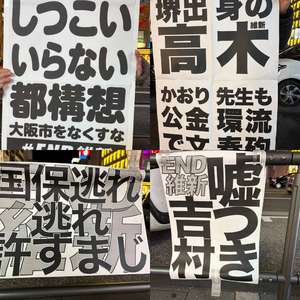 しつこい
いらない
都構想
大阪市をなくすな
堺出身の
維新
高木
かおり先生も
公金環流
国保逃れ
維新
逃れ
許すまじ
END
維新
嘘つき
吉村